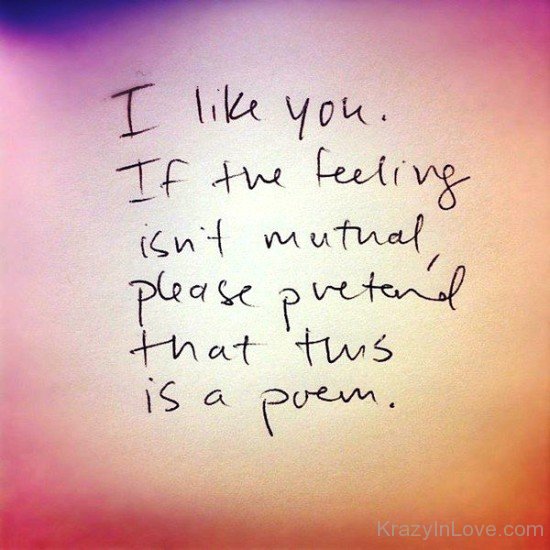 I like you.
If the feeling
isn't mutual,
please pretend
that this
is a poem.
KrazyInLove.com